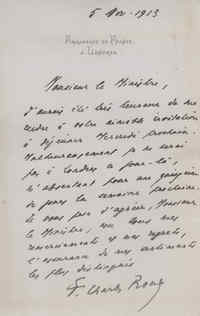 5 Nov. 1913
AMBASSADE DE FRANCE
À LONDRES
Monsieur le Ministre,
J'aurais été très heureux de me
rendre à votre aimable invitation
à déjeuner Vendredi prochain.
Malheureusement je ne serai
pas à Londres ce jour-là,
m'absentant pour une quinzaine
de jours la semaine prochaine.
Je vous prie d'agréer, Monsieur
le Ministre, avec tous mes
remerciements et mes regrets,
l'assurance de mes sentiments
les plus distingués
F. Charles Roux